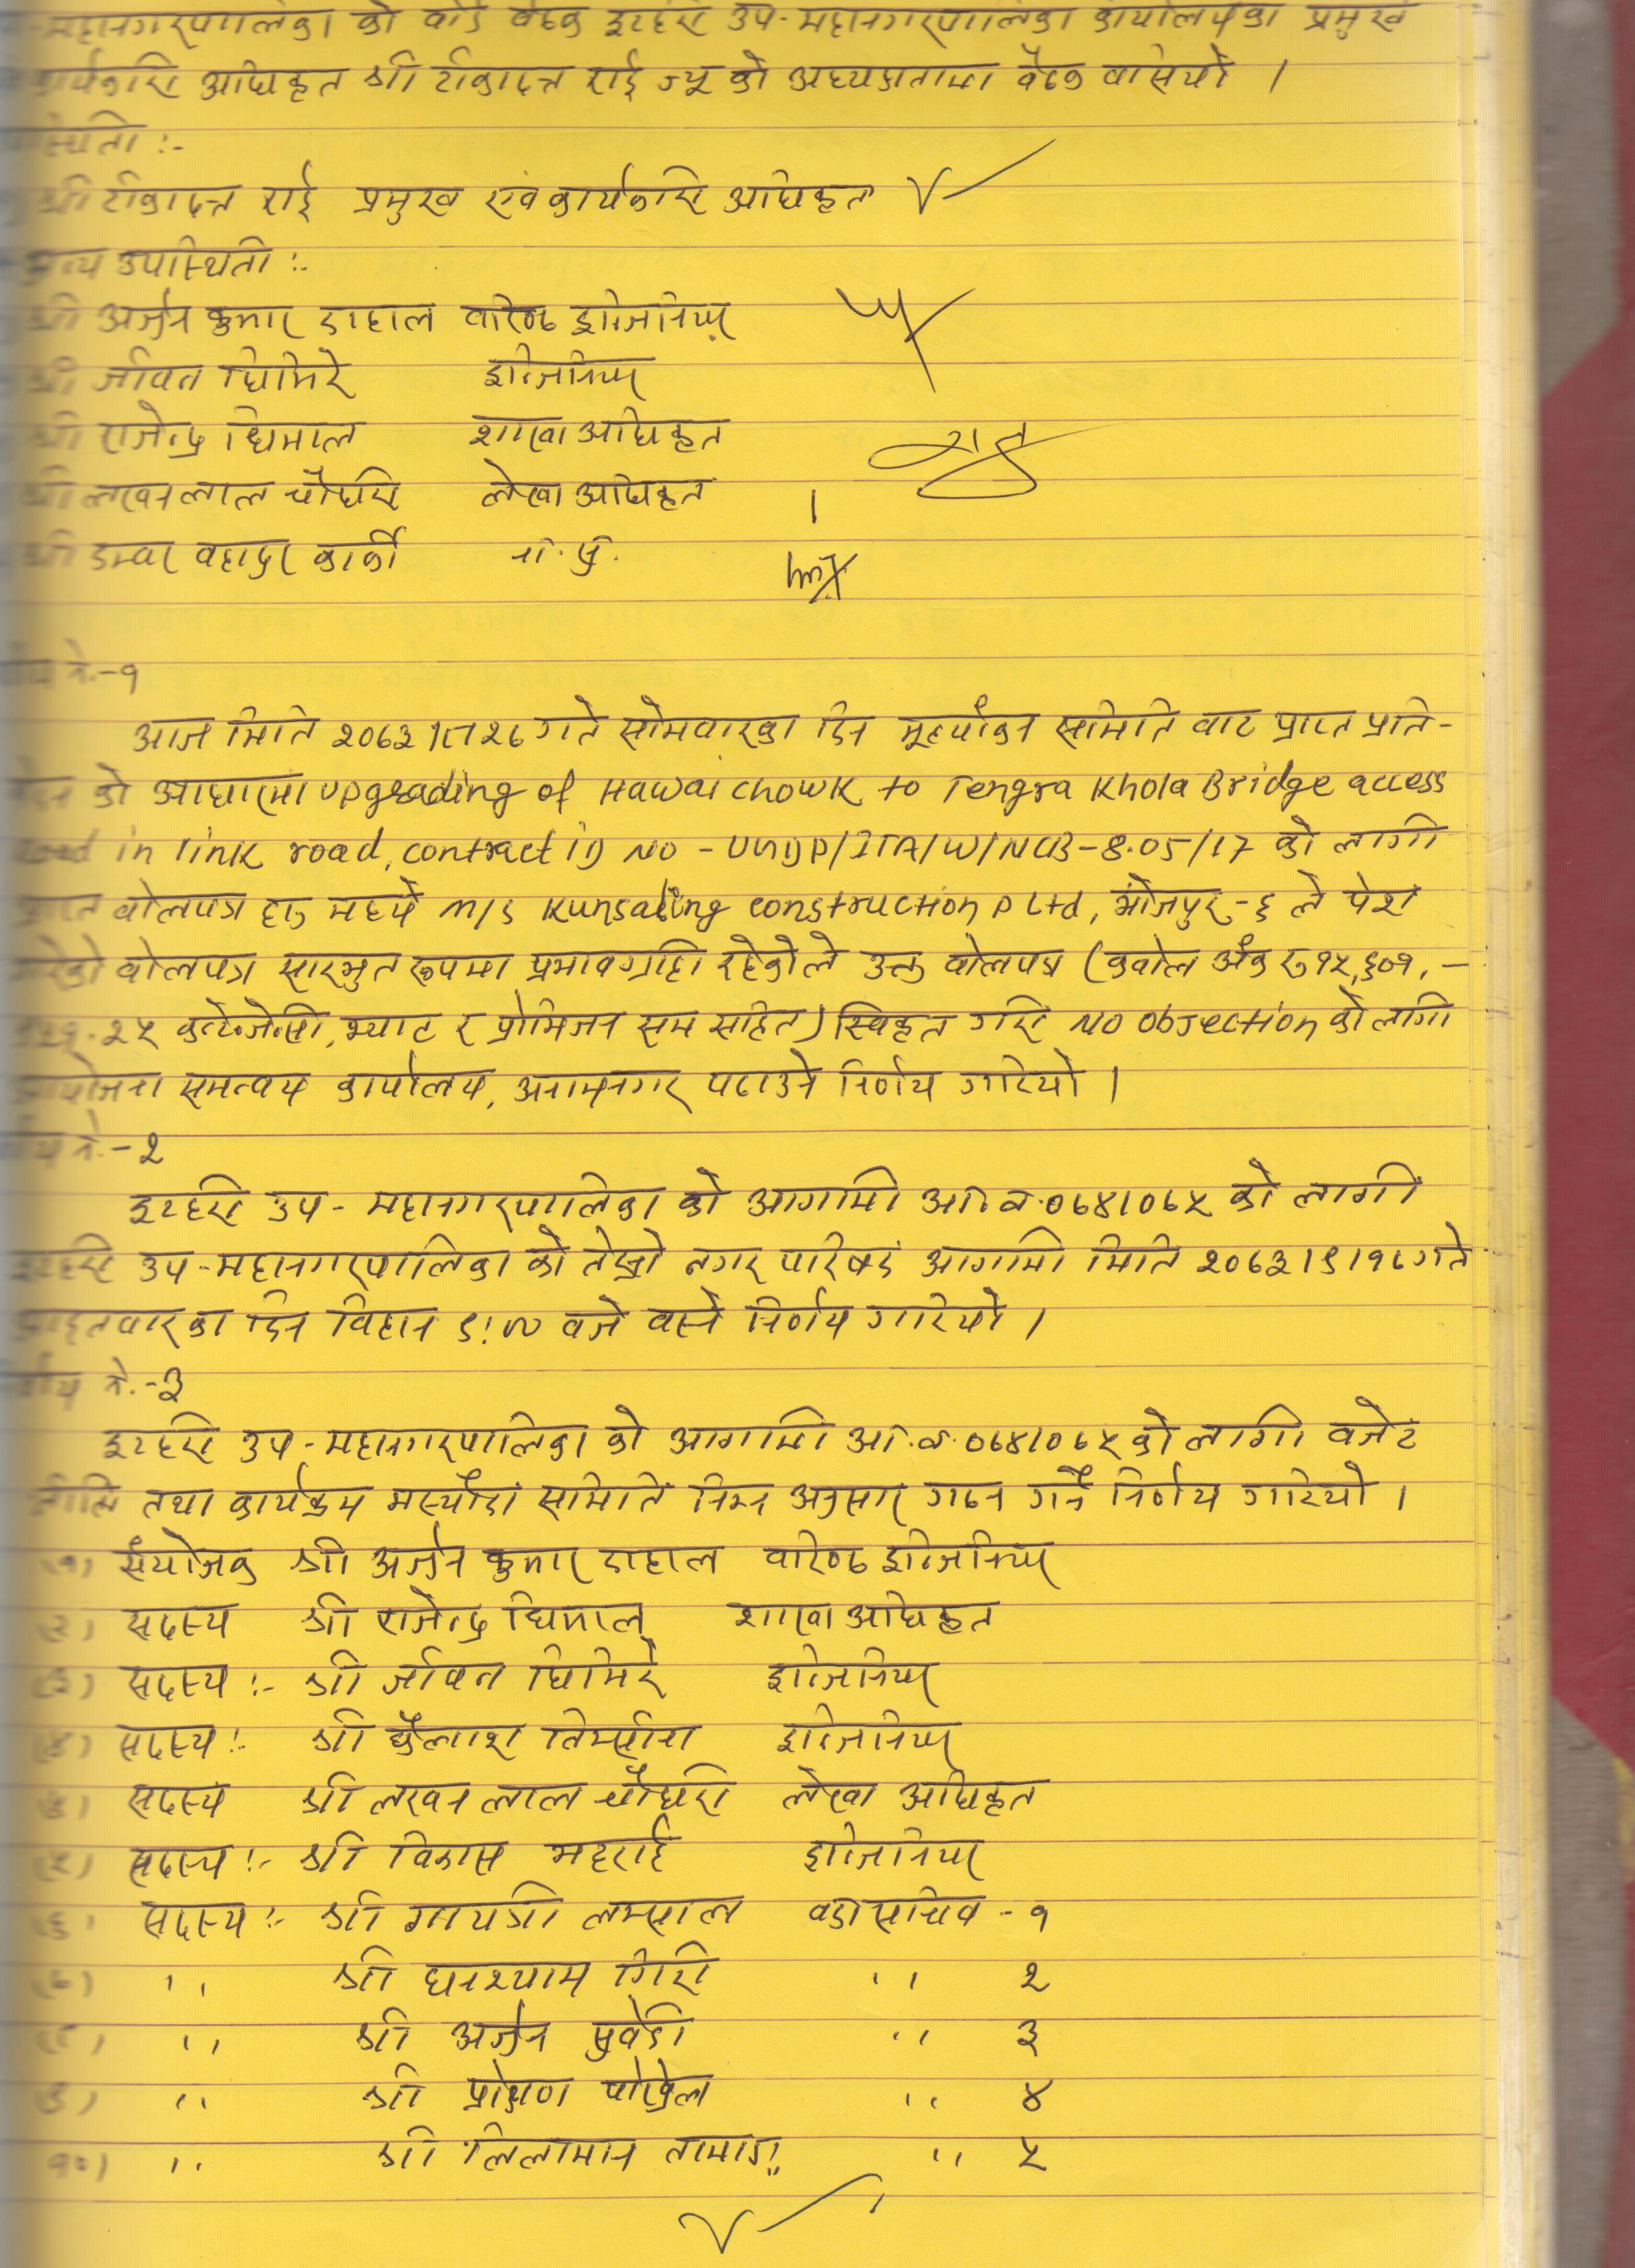 -महानगरपालिका को वोर्ड वैठक इटहरी उप-महानगरपालिका कार्यालयका प्रमुख
कार्यकारी अधिकृत श्री टीकादत्त राई ज्यू को अध्यक्षतामा वैठक वसियो ।
स्थिती :-
श्री टीकादत्त राई प्रमुख एवं कार्यकारी अधिकृत
अन्य उपस्थिती :-
श्री अर्जुन कुमार दाहाल वरिष्ठ इन्जिनियर
श्री जीवन घिमिरे इन्जिनियर
श्री राजेन्द्र धिमाल शाखा अधिकृत
श्री लखनलाल चौधरी लेखा अधिकृत
श्री डम्वर वहादुर कार्की ना.सु.
नं.-१
आज मिति २०७३।८।२७ गते सोमवारका दिन मूल्यांकन समिति वाट प्राप्त प्रति-
को आधारमा Upgrading of Hawai chowk to Tengra Khola Bridge access
road in link road, contract ID NO - UNDP/ITA/W/NCB-8.05/17 को लागी
प्राप्त वोलपत्र हरु मध्ये M/S Kunsaling construction P Ltd, भोजपुर-६ ले पेश
गरेको वोलपत्र सारभुत रुपमा प्रभावग्राही रहेकोले उक्त वोलपत्र (कवोल अँक रु १५,६०१,-
.२५ कन्टेन्जेन्सी, भ्याट र प्रोभिजन सम सहित) स्विकृत गरी No objection को लागी
आयोजना समन्वय कार्यालय, अनामनगर पठाउने निर्णय गरियो ।
नं.-२
इटहरी उप-महानगरपालिका को आगामी आ.व.०७४।०७५ को लागी
इटहरी उप-महानगरपालिका को तेस्रो नगर परिषद आगामी मिति २०७३।९।१७ गते
आइतवारका दिन विहान वजे वस्ने निर्णय गरियो ।
निर्णय नं.-३
इटहरी उप-महानगरपालिका को आगामी आ.व.०७४।०७५ को लागी वजेट
नीति तथा कार्यक्रम मस्यौदा समिति निम्न अनुसार गठन गर्ने निर्णय गरियो ।
(१) संयोजक श्री अर्जुन कुमार दाहाल वरिष्ठ इन्जिनियर
(२) सदस्य श्री राजेन्द्र धिमाल शाखा अधिकृत
(३) सदस्य :- श्री जीवन घिमिरे इन्जिनियर
(४) सदस्य :- श्री कैलाश तिम्सीना इन्जिनियर
सदस्य श्री लखन लाल चौधरी लेखा अधिकृत
(५) सदस्य :- श्री विकास भट्टराई इन्जिनियर
(६) सदस्य :- श्री गायत्री लम्साल वडा सचिव - १
(७) ,, श्री घनश्याम गिरी ,, २
(८) ,, श्री अर्जुन सुवेदी ,, ३
(९) ,, श्री प्रोक्षण पोख्रेल ,, ४
१०) ,, श्री लिलामान तामाङ ,, ५